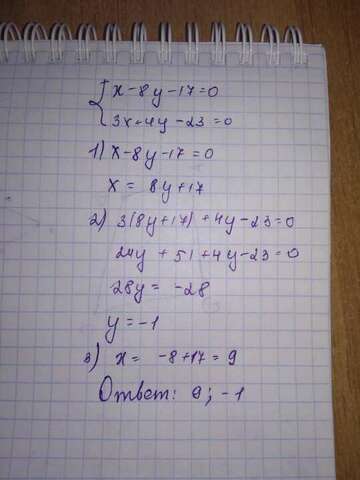 { x - 8y - 17 = 0
3x + 4y - 23 = 0
1) x - 8y - 17 = 0
x = 8y + 17
2) 3(8y + 17) + 4y - 23 = 0
24y + 51 + 4y - 23 = 0
28y = -28
y = -1
3) x = -8 + 17 = 9
Ответ: 9; -1